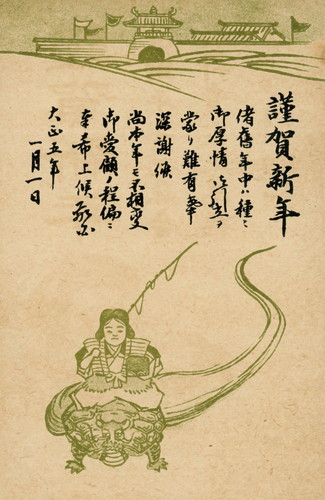 謹賀新年
偖舊年中ハ種〻
御厚情
蒙リ難有奉
深謝候
尚本年モ不相変
御愛顧ノ程偏ニ
奉希上候
大正五年
一月一日